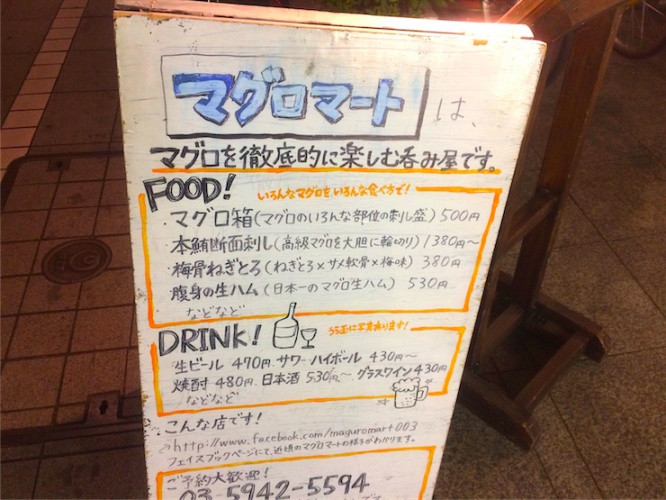 マグロマート は、
マグロを徹底的に楽しむ呑み屋です。
FOOD! いろんなマグロをいろんな食べ方で!
・マグロ箱(マグロのいろんな部位の刺し盛) 500円
・本鮪断面刺し(高級マグロを大胆に輪切り) 1380円〜
・梅骨ねぎとろ(ねぎとろ×サメ軟骨×梅味) 380円
・腹身の生ハム(日本一のマグロ生ハム) 530円
などなど
DRINK! うら面に写真あります!
生ビール 490円 サワー ハイボール 430円〜
焼酎 480円 日本酒 530円〜 グラスワイン 430円
などなど
こんな店です!
http://www.facebook.com/maguromart003
フェイスブックページにて、近頃のマグロマートの様子がわかります。
ご予約大歓迎!
03-5942-5594